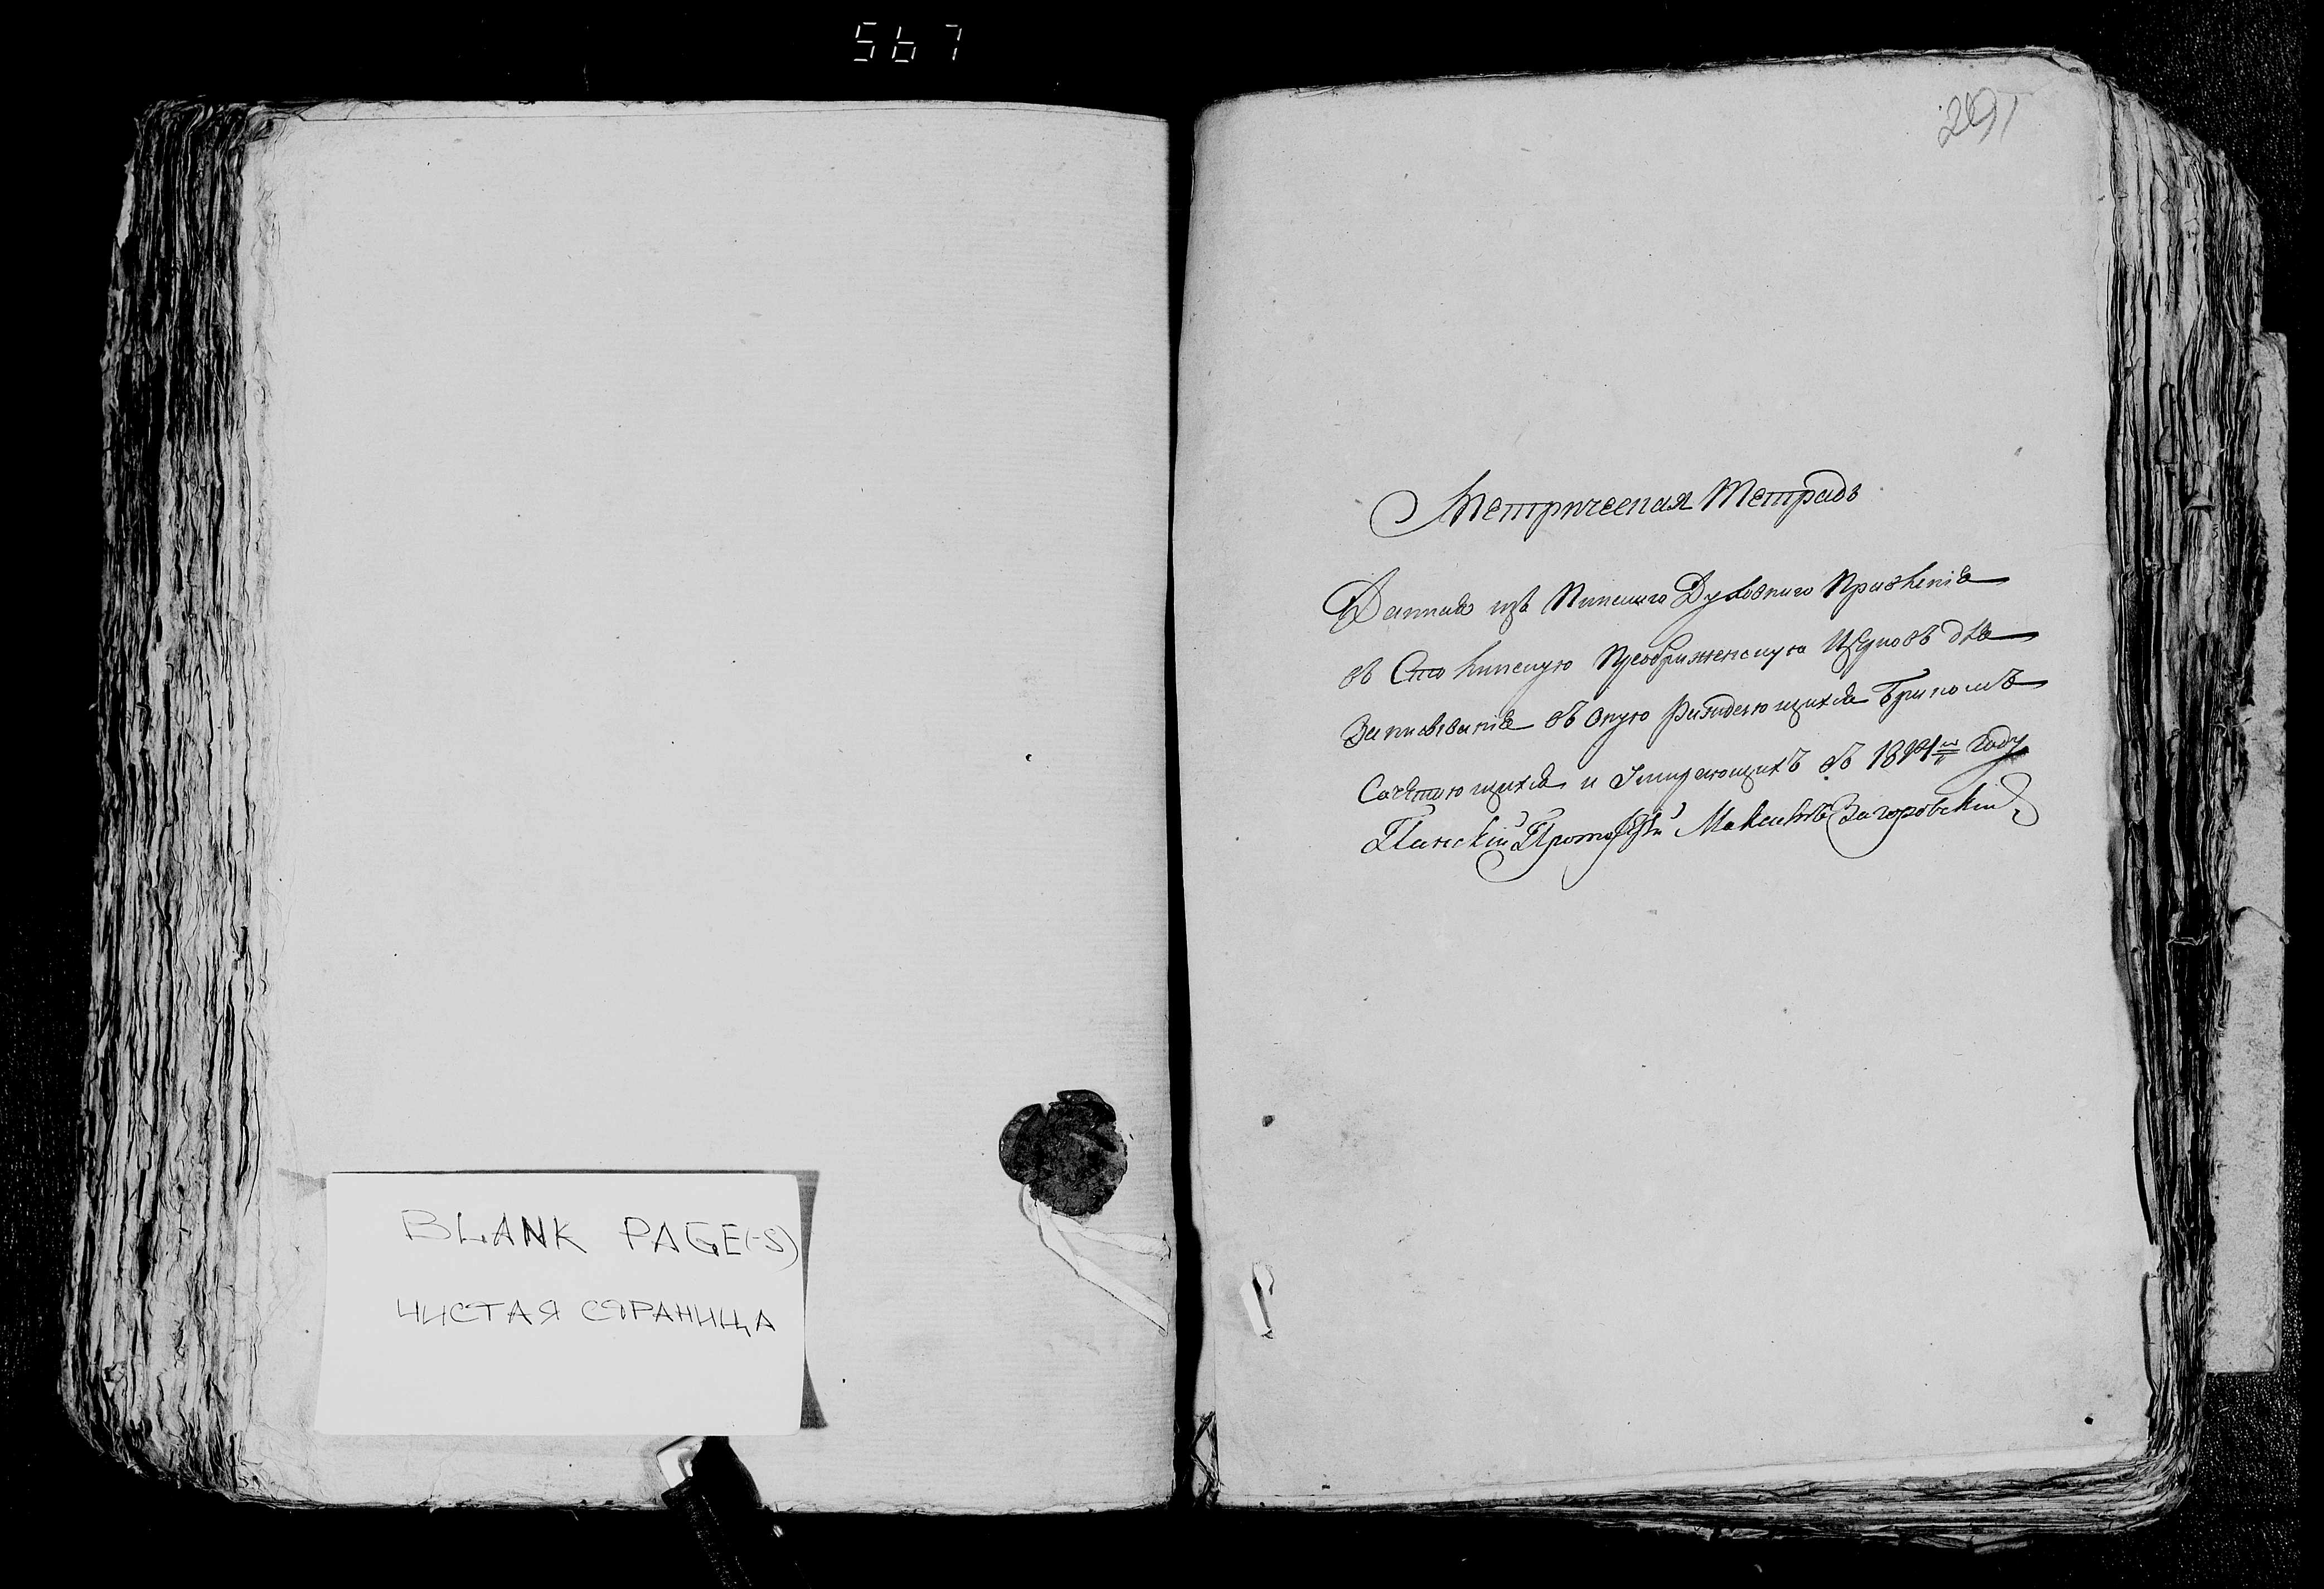 567
291
Метрическая Тетрадь
Данная изъ Пинскаго Духовнаго Правленія
въ Столинскую Преображенскую Церковь для
Записыванія въ оную Раждающихся Бракомъ
Сочетающихся и Умирающихъ въ году
Пинскій Протоіерей Максимъ Загоровскій
BLANK PAGE(-S)
ЧИСТАЯ СТРАНИЦА